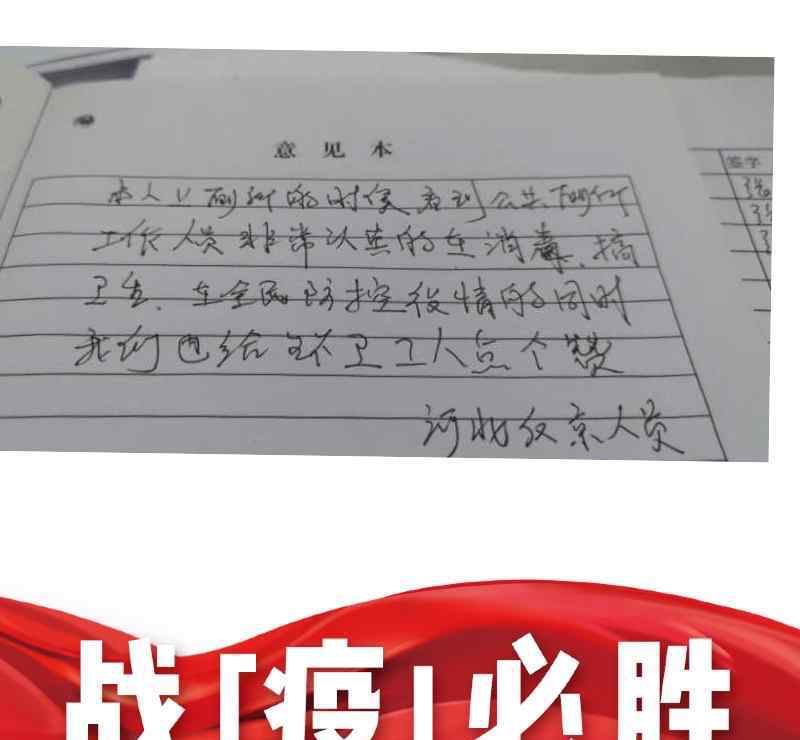 意见本
本人从厕所的时候看到公共厕所
工作人员非常认真的在消毒、搞
卫生、在全民防控役情的同时
我们也给环卫工人点个赞
河北返京人员
签字
战「疫」必胜